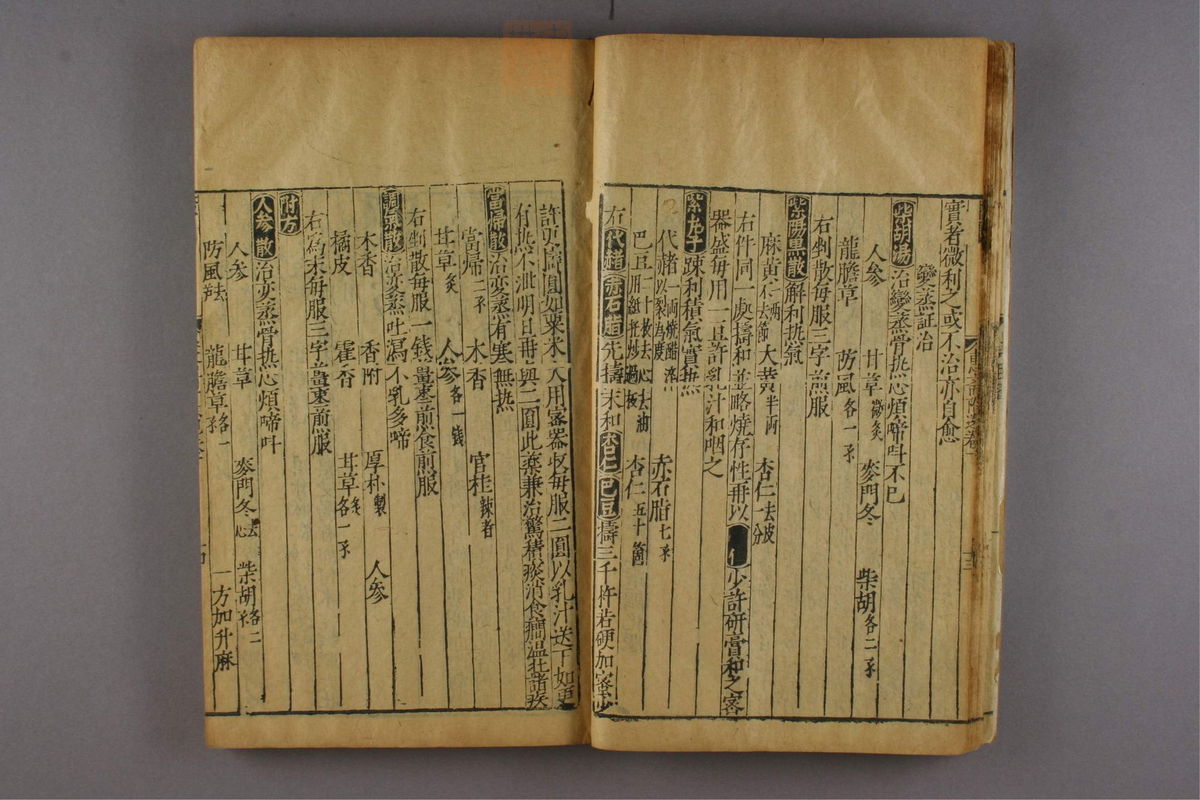 實者微利之或不治亦自愈
變蒸証治
柴胡湯 治變蒸骨热心煩啼呌不已
人参 甘草微炙 麥門冬 柴胡各二𰀉
龍膽草 防風各一𰀉
右剉散每服三字煎服
紫陽黒散 解利热氣
麻黄 去節 大黄半両 杏仁去皮 分
右件同一處擣和並略燒存性再以 少許研膏和之宻
器盛每用一豆許乳汁和咽之
紫丸子 踈利積氣實热
代赭一両燒醋淬 以 為度 赤石脂七𰀉
巴豆 十枚去心 去油 用紙 炒 杏仁五十箇
右代赭赤石脂先擣末和杏仁巴豆擣三千杵若硬加宻少
許更 圓如粟米大用宻器收每服二圓以乳汁送下如更
有热不泄明旦再與二圓此藥兼治驚積痰消食癎温壮諸疾
當歸散 治変蒸有寒無热
當歸二𰀉 木香 官桂辣者
甘草炙 人参各一錢
右剉散每服一錢姜棗煎食前服
調氣散 治変蒸吐瀉不乳多啼
木香 香附 厚朴製 人参
橘皮 霍香 甘草炙各一𰀉
右為末每服三字薑棗煎服
附方
人参散 治変蒸骨热心煩啼呌
人参 甘草 麥門冬去心 柴胡各二𰀉
防風 龍膽草各一𰀉 一方加升麻